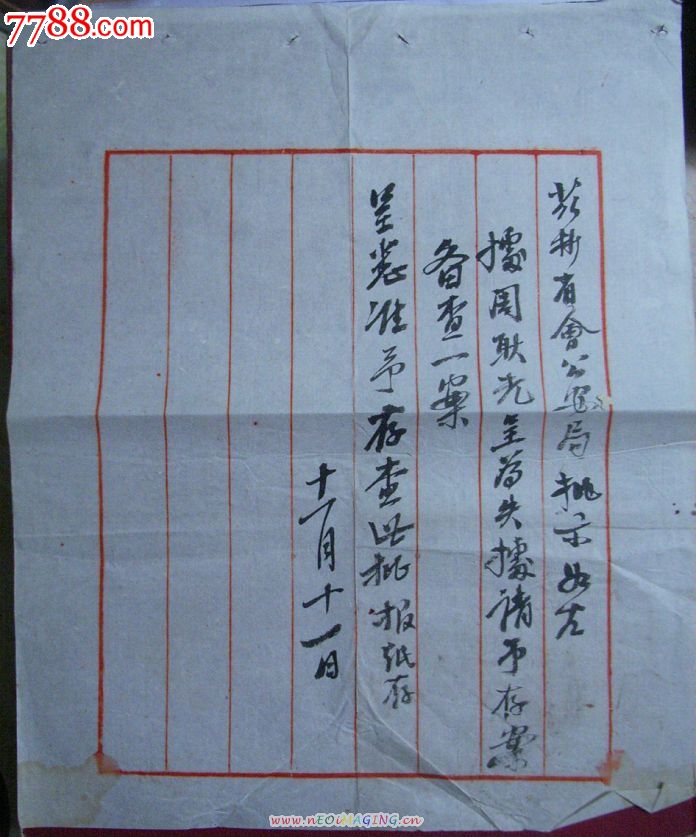 7788.com
新省會公安局批示如左
據周耿光呈為失據請予存案
备查一案
呈悉准予存查此批报纸存
十一月十一日
www.nEOiMAGING.cn